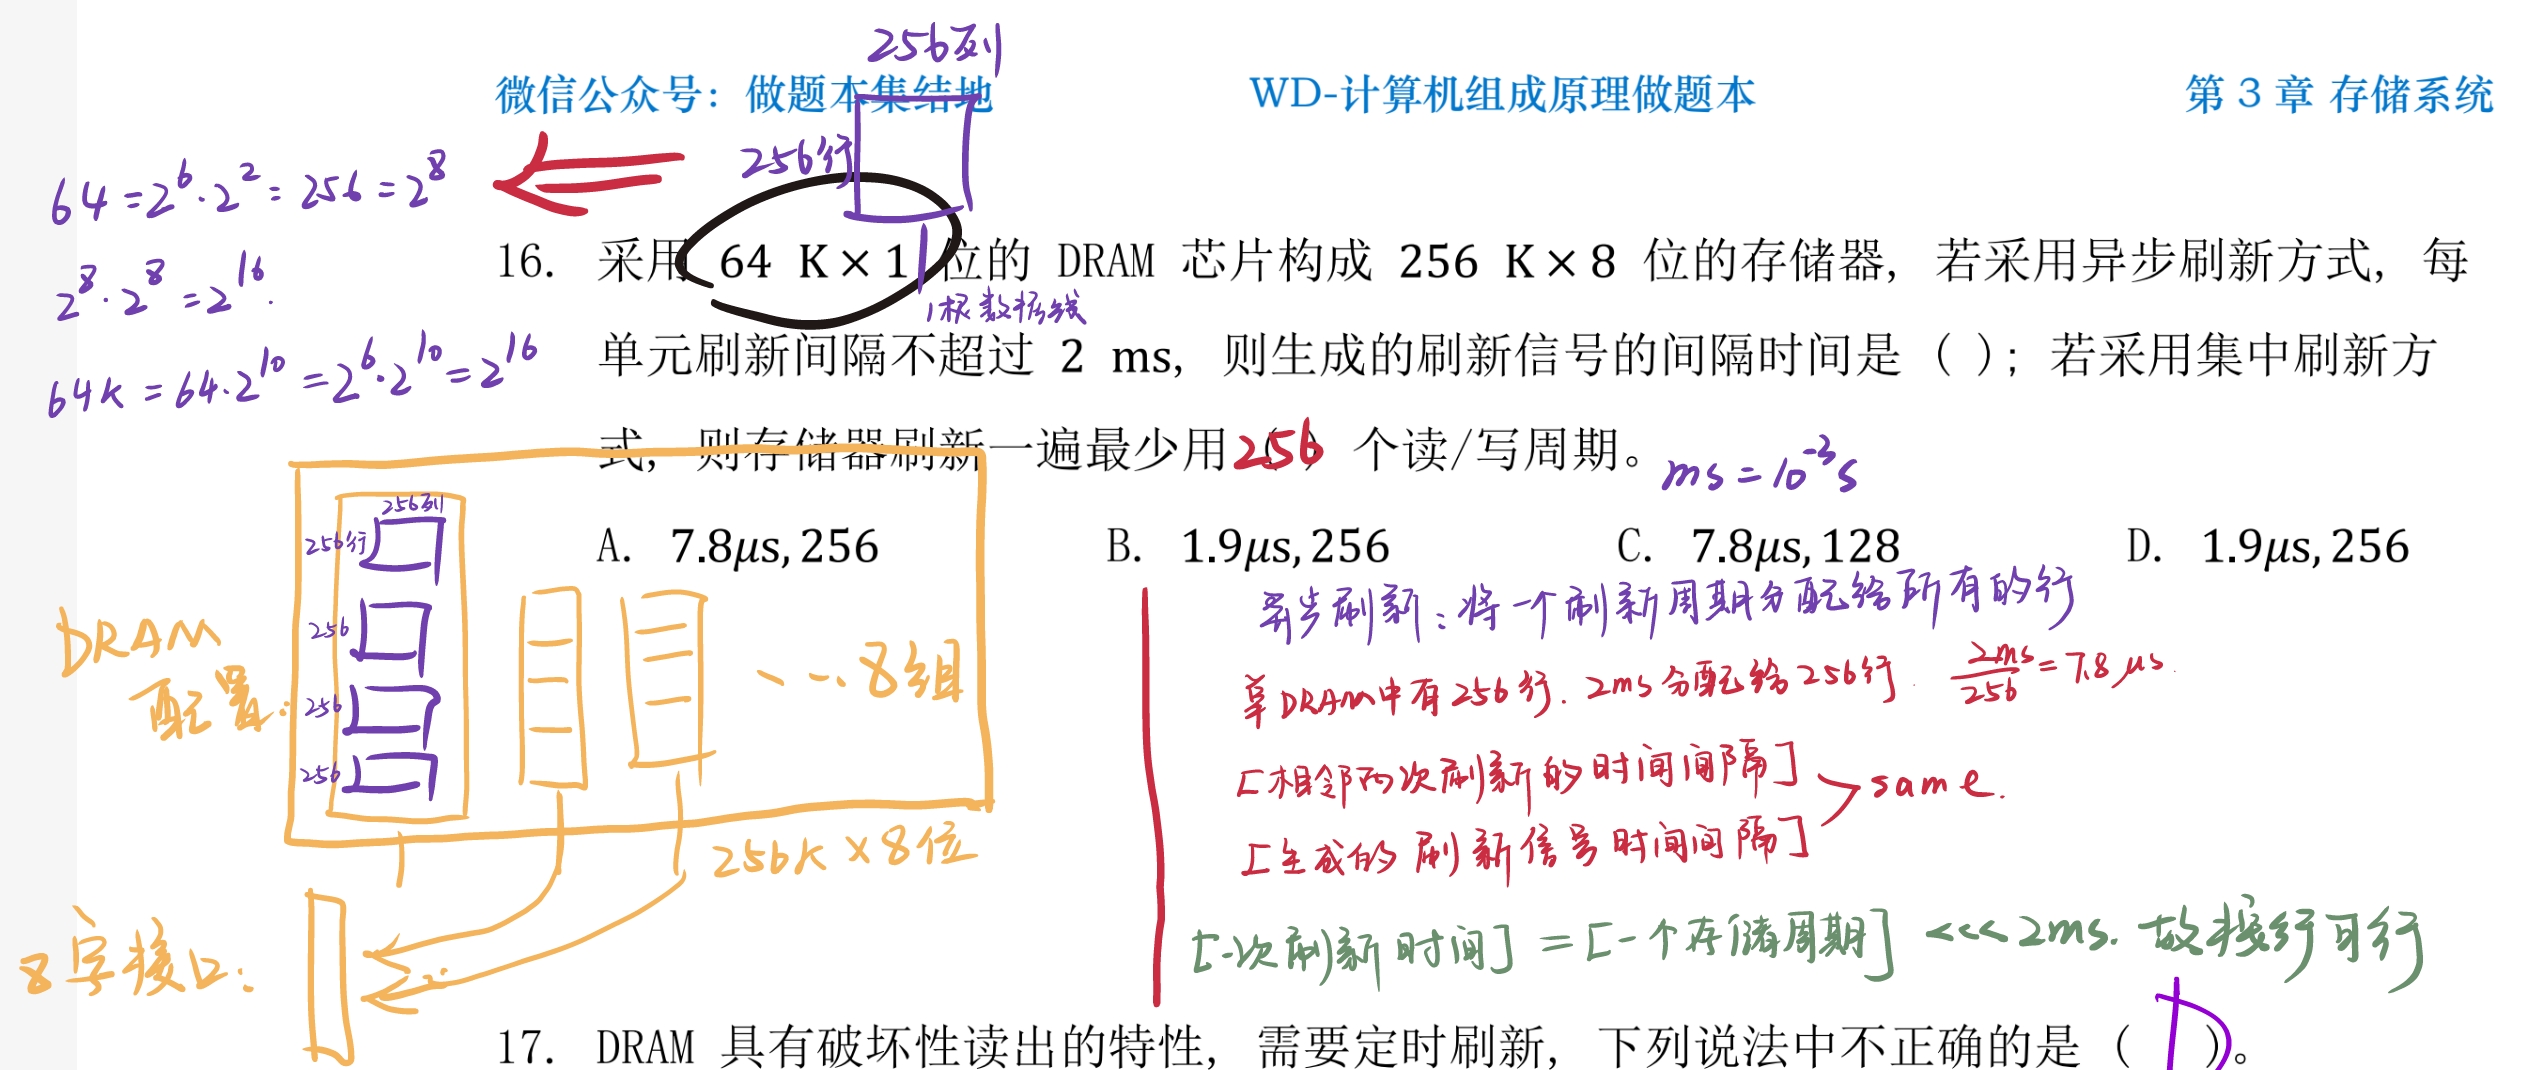 256列
微信公众号：做题本集结地 WD-计算机组成原理做题本 第 3 章 存储系统
256行
64 = 2^6 · 2^2 = 256 = 2^8
2^8 · 2^8 = 2^16.
64K = 64·2^10 = 2^6·2^10 = 2^16
16. 采用 64 K × 1 位的 DRAM 芯片构成 256 K × 8 位的存储器，若采用异步刷新方式，每
1根数据线
单元刷新间隔不超过 2 ms，则生成的刷新信号的间隔时间是（ ）；若采用集中刷新方
式，则存储器刷新一遍最少用（256）个读/写周期。
ms = 10^-3 s
A. 7.8μs, 256 B. 1.9μs, 256 C. 7.8μs, 128 D. 1.9μs, 256
256列
256行
256
256
256
DRAM
配置:
···8组
256K × 8位
8字接口:
异步刷新：将一个刷新周期分配给所有的行
单DRAM中有256行. 2ms分配给256行. 2ms/256 = 7.8μs.
[相邻两次刷新的时间间隔]
same.
[生成的刷新信号时间间隔]
[一次刷新时间] = [一个存储周期] <<< 2ms. 故按行可行
17. DRAM 具有破坏性读出的特性，需要定时刷新，下列说法中不正确的是（ D ）。